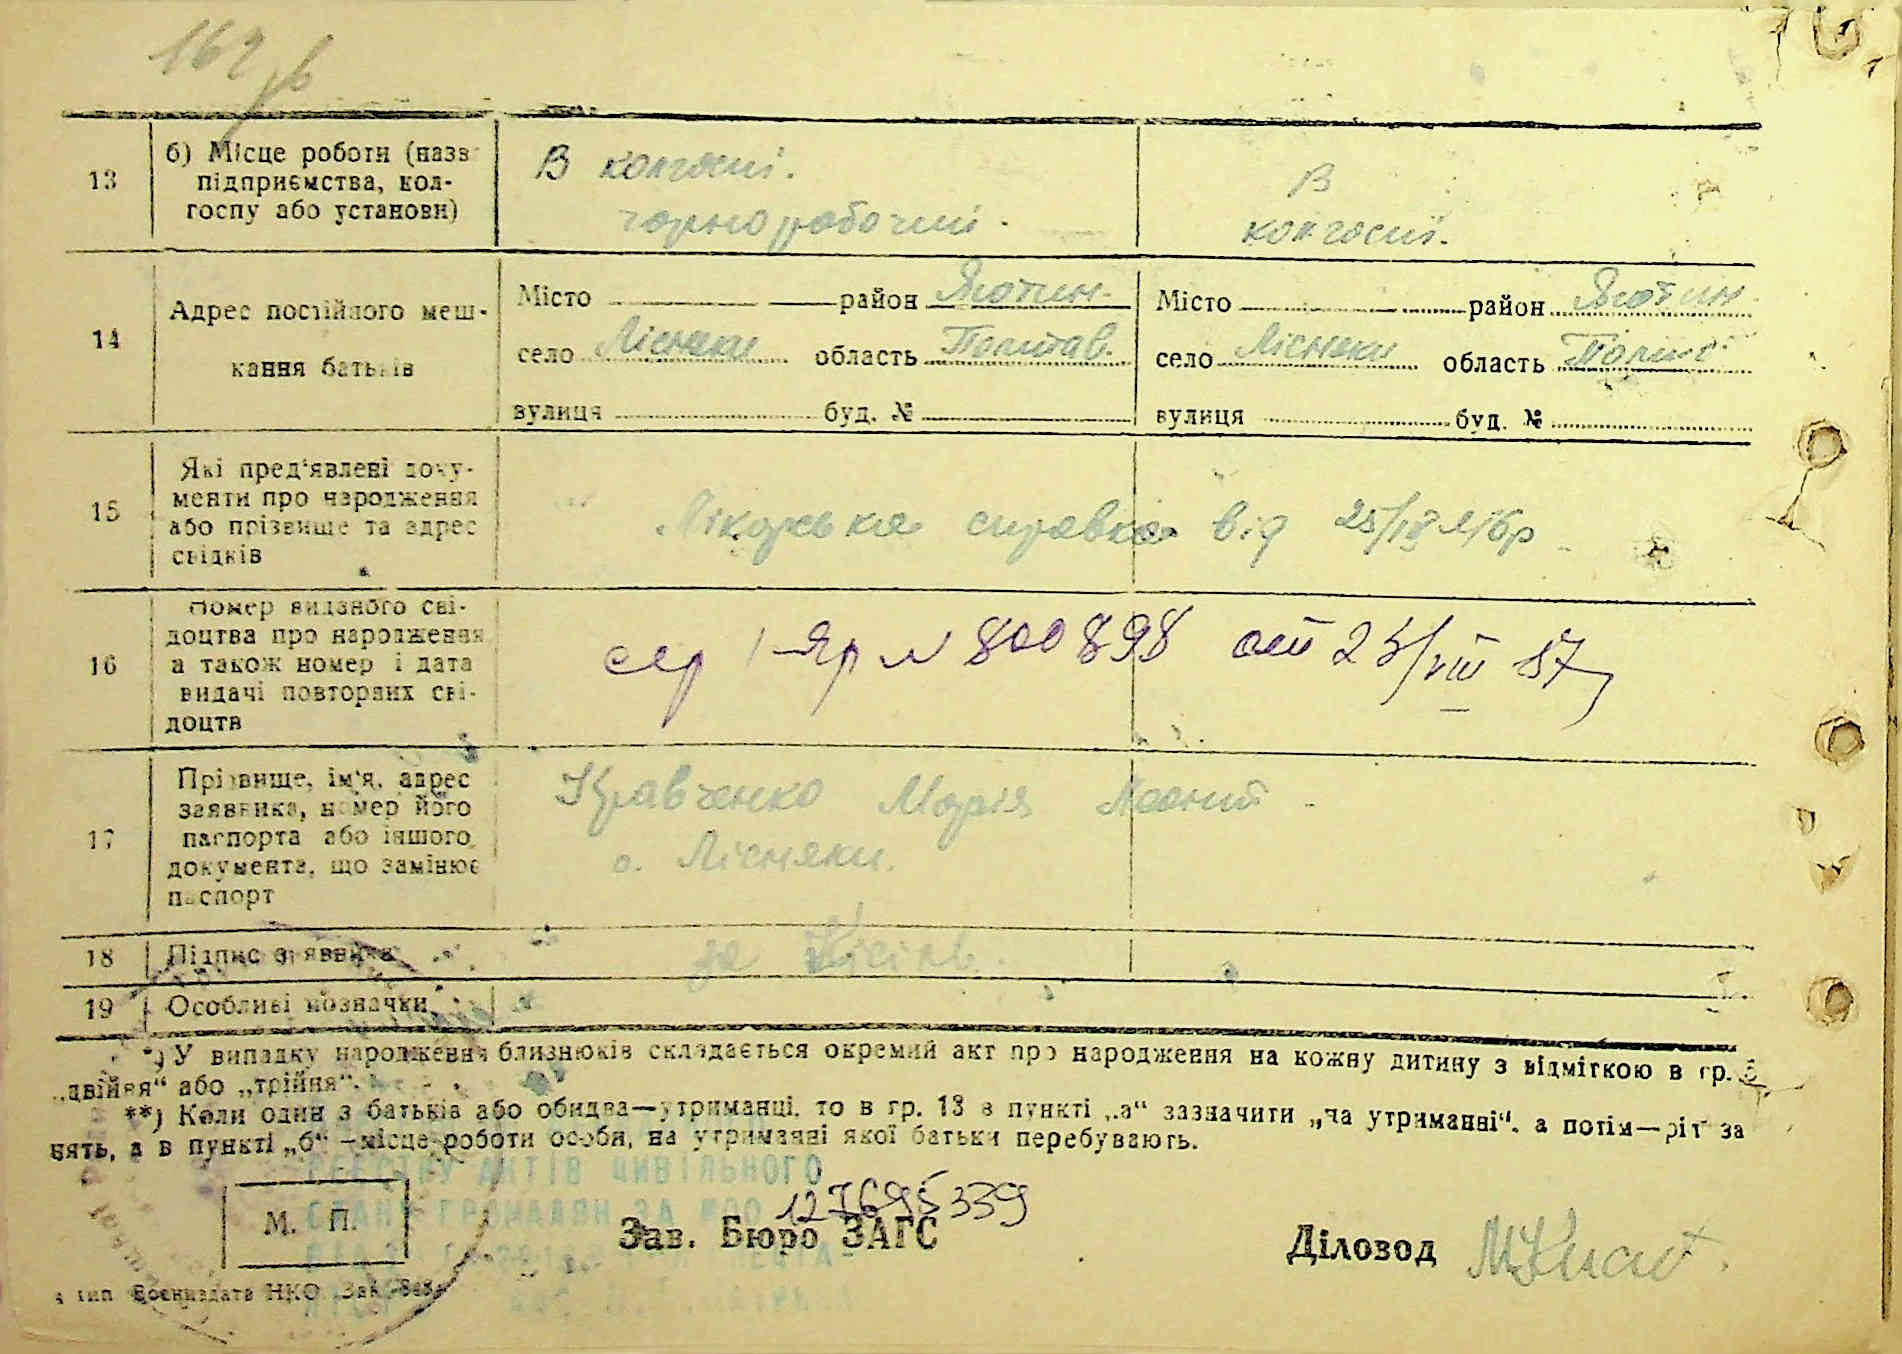 162
13
б) Місце роботи (назв
підприємства, кол-
госпу або установи)
В колгоспі.
чорноробочий.
В
колгоспі.
14
Адрес постійного меш-
кання батьків
Місто район Яготин.
село Лісняки область Полтав.
вулиця буд. №
Місто район Яготин.
село Лісняки область
вулиця буд. №
15
Які пред'явлені доку-
менти про народження
або прізвище та адрес
свідків
Лікарська справка від
16
Номер виданого сві-
доцтва про народження
а також номер і дата
видачі повторних сві-
доцтв
сер 1-Яр № 800898 от 25/VIII 87
17
Прізвище, ім'я, адрес
заявника, номер його
паспорта або іншого
документа, що замінює
паспорт
Кравченко Марія
с. Лісняки.
18
Підпис заявника
за
19
Особливі позначки
*) У випадку народження близнюків складається окремий акт про народження на кожну дитину з відміткою в гр.
„двійня“ або „трійня“.
**) Коли один з батьків або обидва—утриманці, то в гр. 13 в пункті „а“ зазначити „на утриманні“, а потім—ріт за
нять, а в пункті „б“ —місце роботи особи, на утриманні якої батьки перебувають.
АКТІВ ЦИВІЛЬНОГО
СТАНУ ГРОМАДЯН ЗА №00
127695339
М. П.
Зав. Бюро ЗАГС
Діловод
тип Воениздата НКО Зак